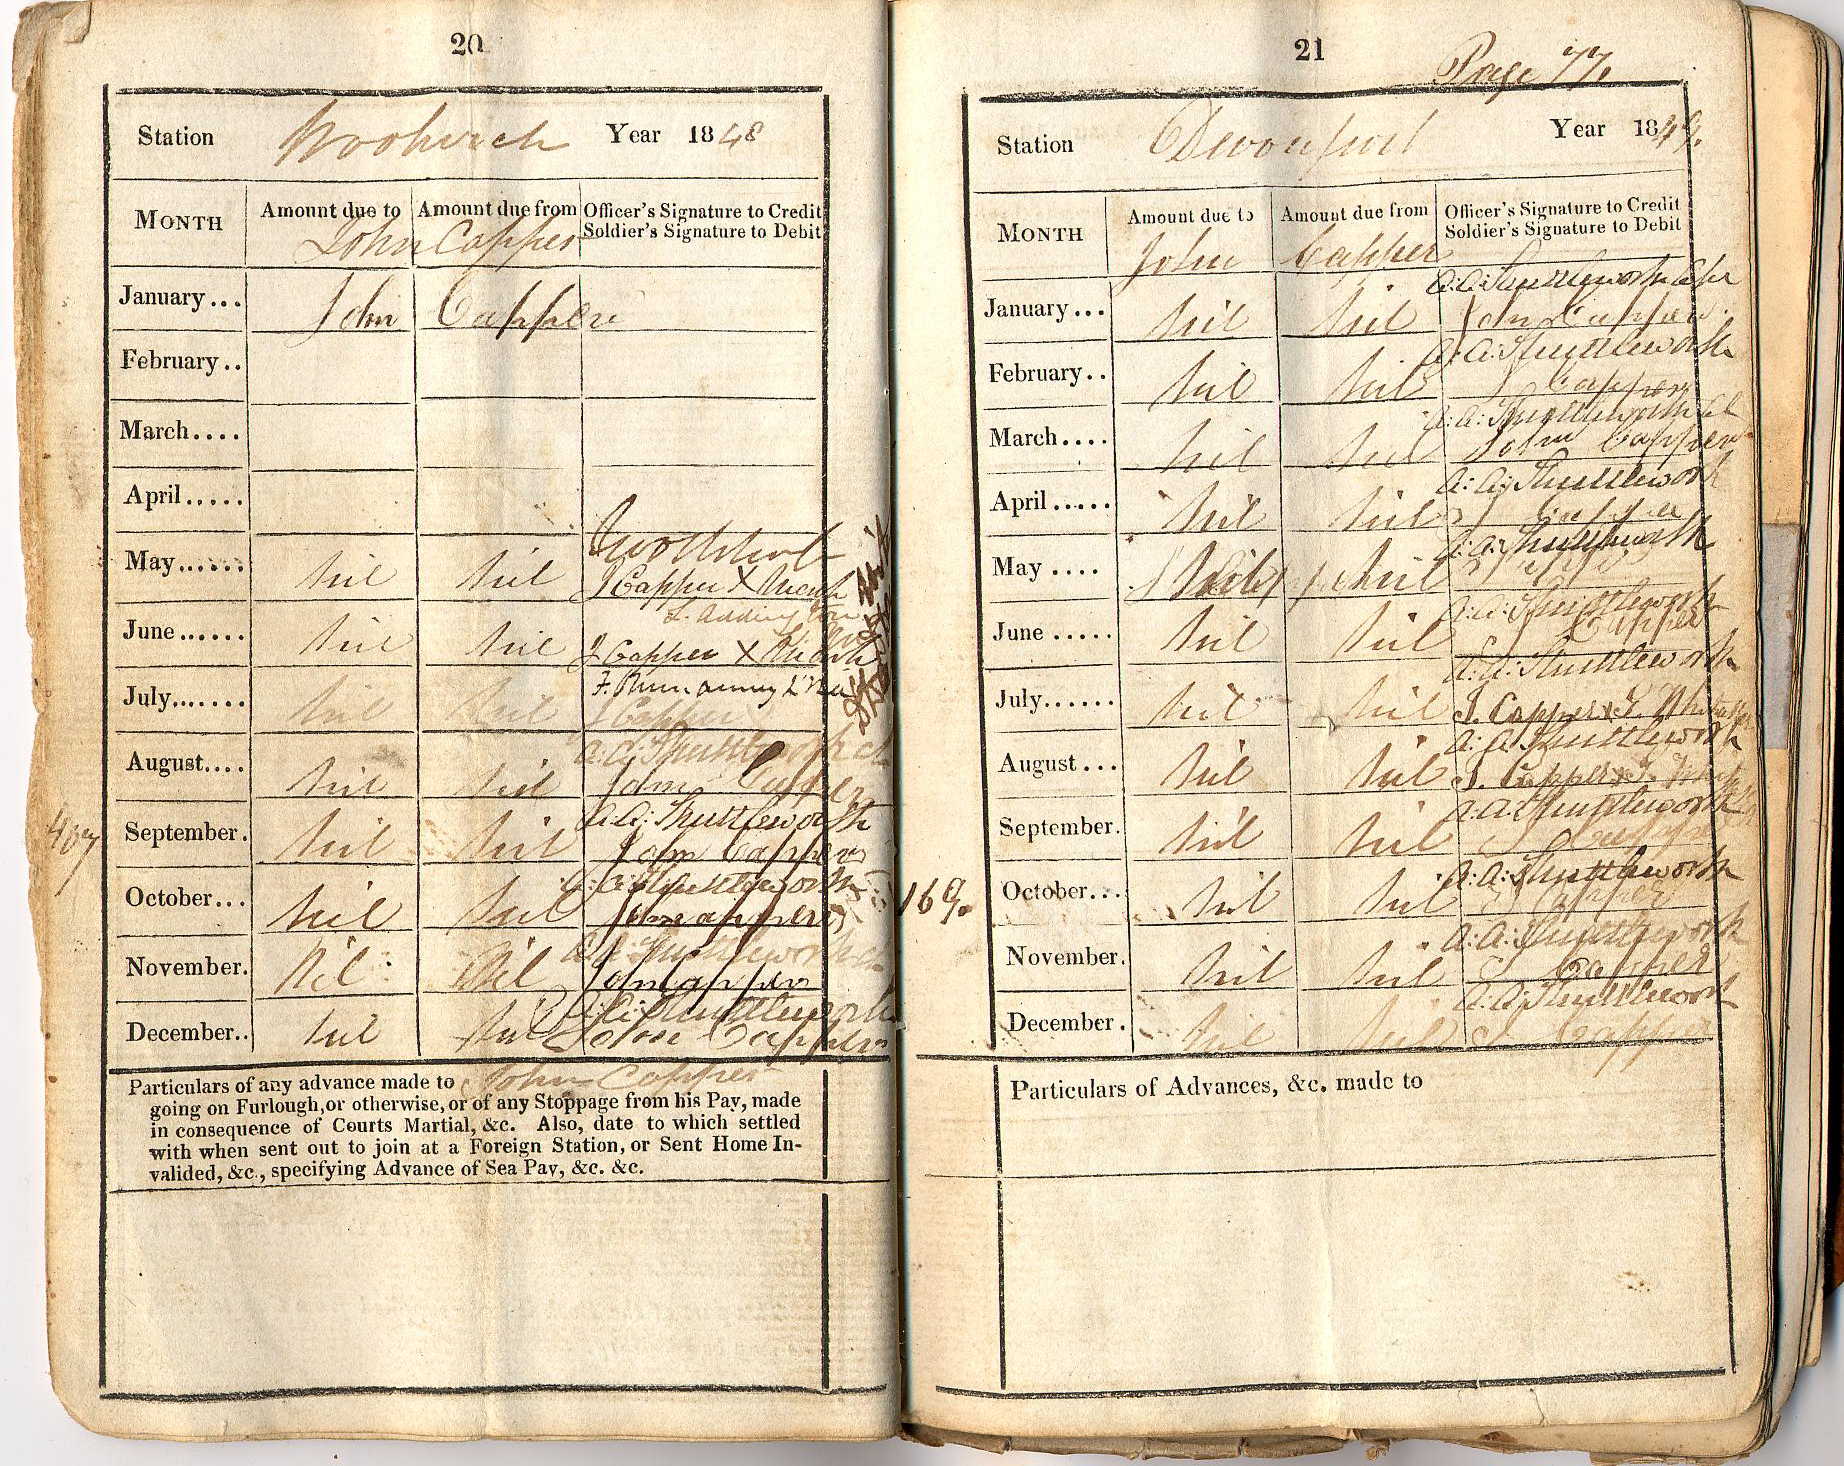 20
Station Woolwich Year 1848
MONTH Amount due to Amount due from Officer's Signature to Credit
Soldier's Signature to Debit
John Capper
January...
John Capper
February..
March....
April.....
May...... nil nil
J Capper X
June...... nil nil J Capper X
July....... nil nil J Capper
A.A. Shuttleworth
August.... nil nil John Capper
A.A. Shuttleworth
407
September. nil nil John Capper
A.A. Shuttleworth
October... nil nil
A.A. Shuttleworth
November. Nil Nil
A.A. Shuttleworth
December.. nil nil John Capper
Particulars of any advance made to John Capper
going on Furlough, or otherwise, or of any Stoppage from his Pay, made
in consequence of Courts Martial, &c. Also, date to which settled
with when sent out to join at a Foreign Station, or Sent Home In-
valided, &c., specifying Advance of Sea Pay, &c. &c.
21
Page 77.
Station Devonport Year 1849.
MONTH Amount due to Amount due from Officer's Signature to Credit
Soldier's Signature to Debit
John Capper
A.A. Shuttleworth
January... nil nil John Capper
A.A. Shuttleworth
February.. nil nil J Capper
A.A. Shuttleworth
March.... nil nil John Capper
A.A. Shuttleworth
April..... nil nil J Capper
A.A. Shuttleworth
May .... nil nil
A.A. Shuttleworth
June ..... nil nil J Capper
A.A. Shuttleworth
July...... nil nil J. Capper
A.A. Shuttleworth
August... nil nil J. Capper
A.A. Shuttleworth
September. nil nil J Capper
A.A. Shuttleworth
169.
October... nil nil J Capper
A.A. Shuttleworth
November. nil nil J Capper
A.A. Shuttleworth
December. nil nil J Capper
Particulars of Advances, &c. made to